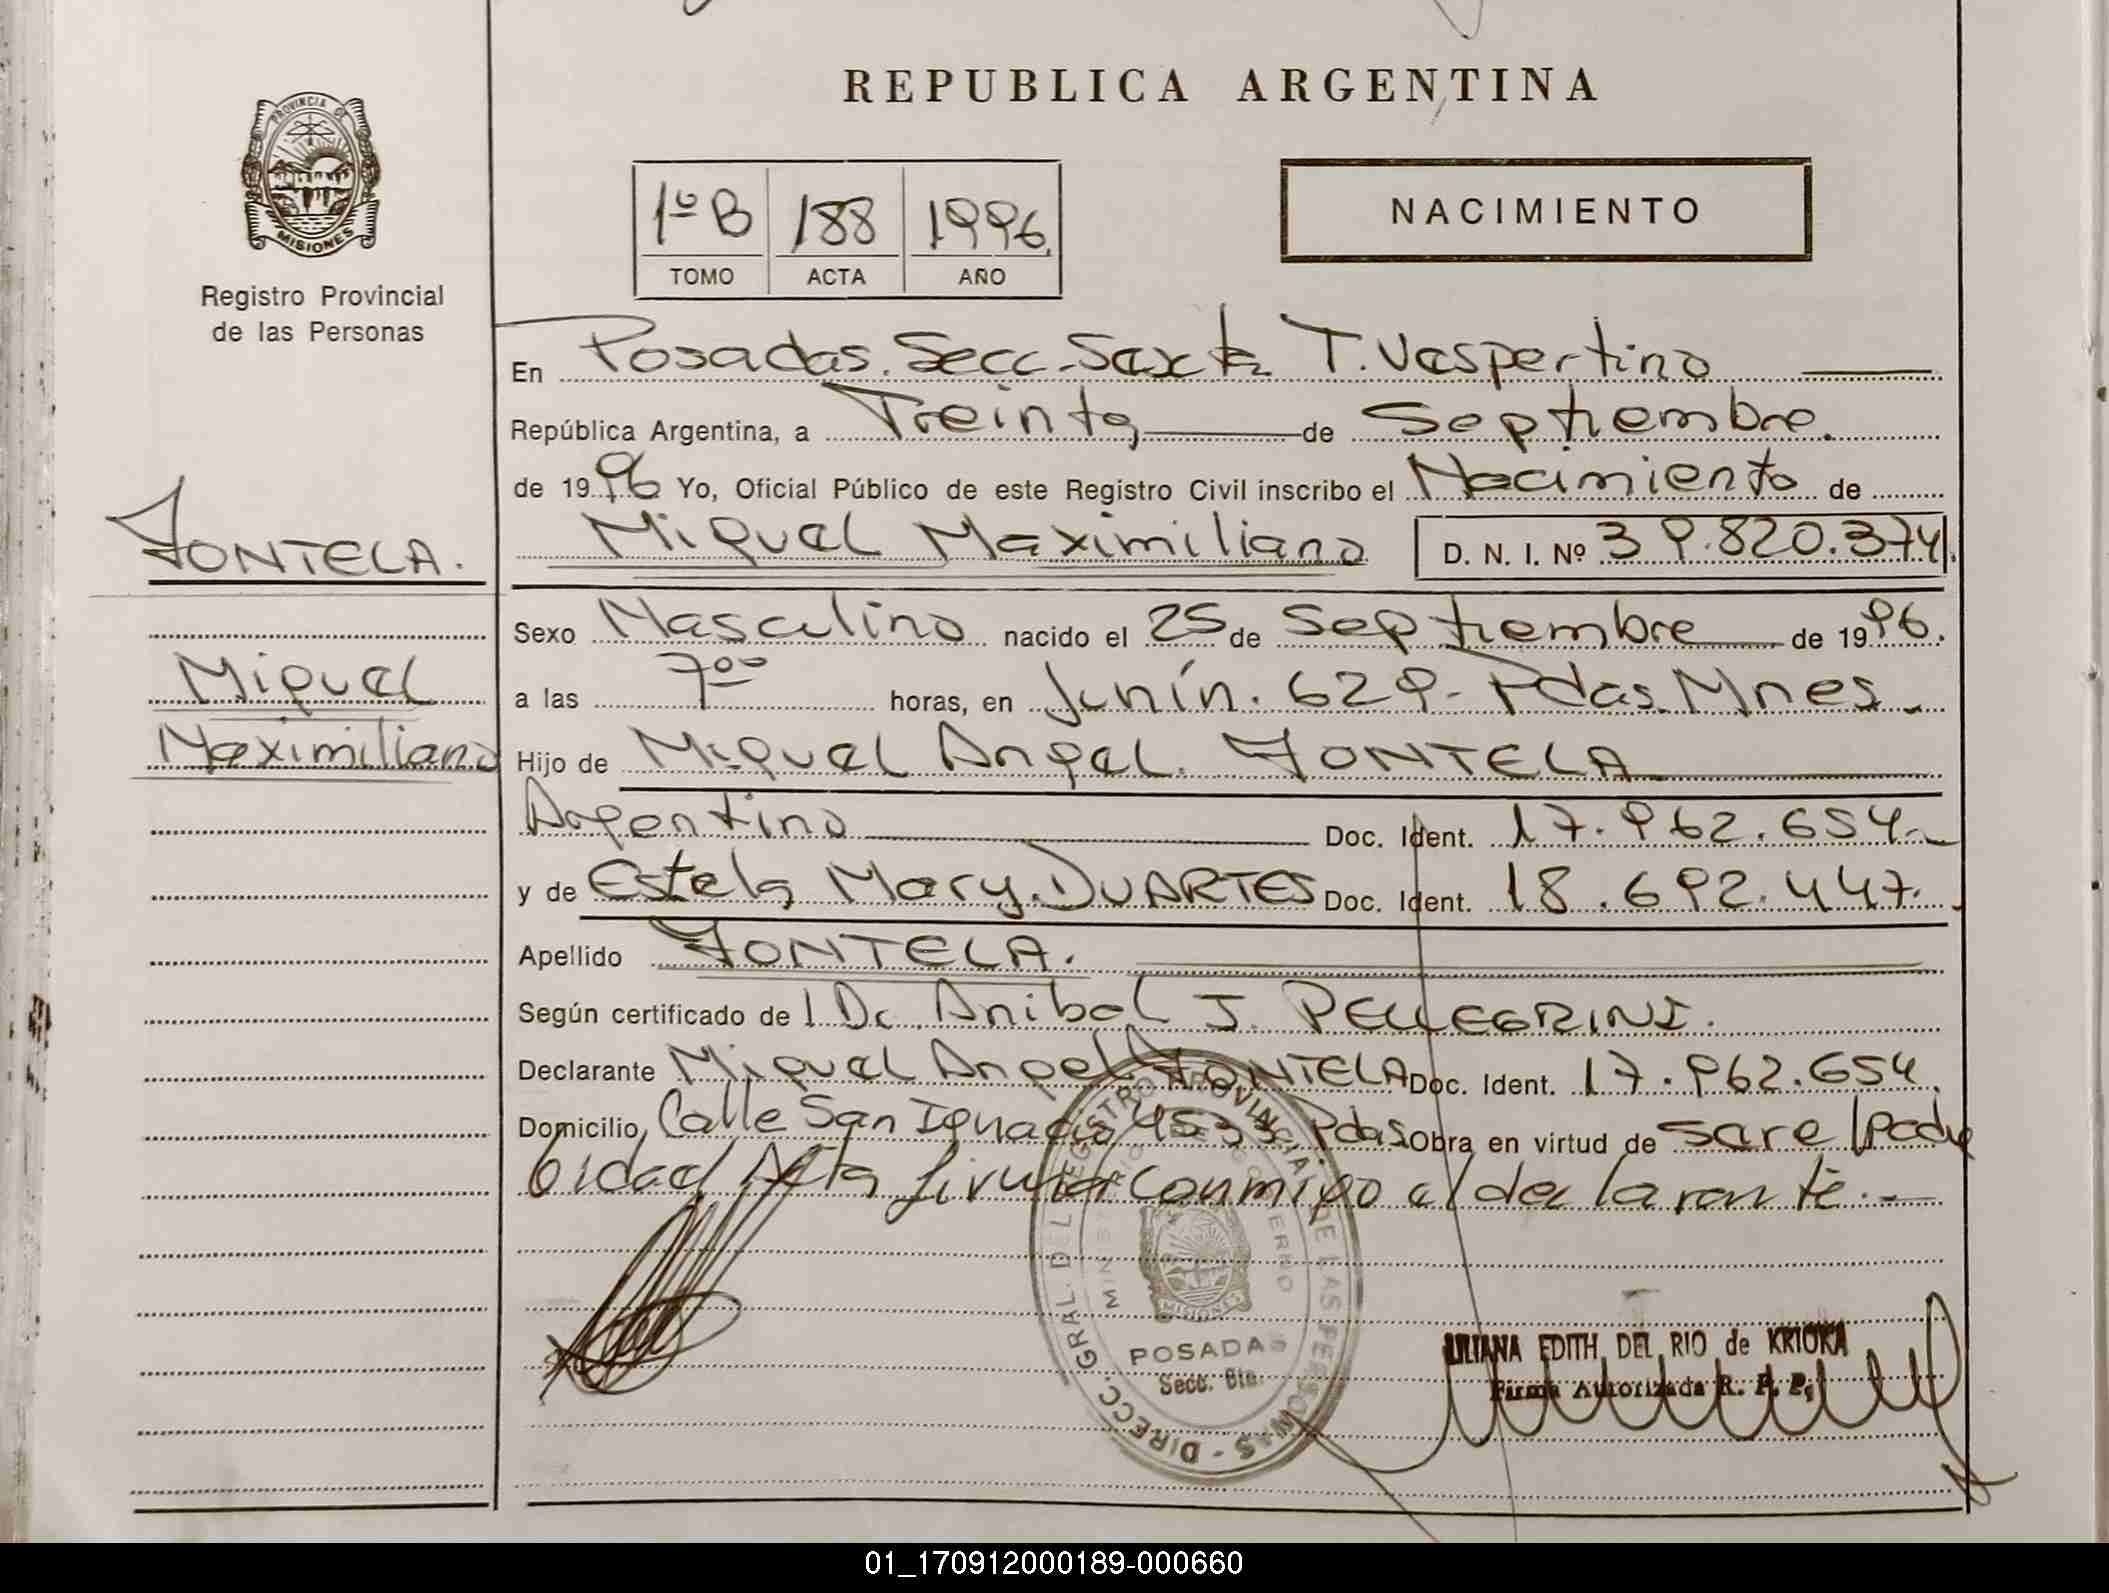 REPUBLICA ARGENTINA
PROVINCIA DE
MISIONES
Registro Provincial
de las Personas
1º B 188 1996
TOMO ACTA AÑO
NACIMIENTO
En Posadas. Secc. Sexta T. Vespertino
República Argentina, a Treinta de Septiembre.
de 1996 Yo, Oficial Público de este Registro Civil inscribo el Nacimiento de
Miguel Maximiliano D. N. I. Nº 39.820.374
FONTELA.
Miguel
Maximiliano
Sexo Masculino nacido el 25 de Septiembre de 1996.
a las 7ºº horas, en Junín. 629- Pdas. Mnes.
Hijo de Miguel Angel. FONTELA
Argentino Doc. Ident. 17.962.654
y de Estela Mary. DUARTES Doc. Ident. 18.692.447.
Apellido FONTELA.
Según certificado de l Dr. Anibal J. PELLEGRINI.
Declarante Miguel Angel FONTELA Doc. Ident. 17.962.654.
Domicilio Calle San Ignacio Pdas Obra en virtud de
Acta conmigo el declarante.-
DIRECC. GRAL. DEL REGISTRO PROVINCIAL DE LAS PERSONAS
MINISTERIO GOBIERNO
MISIONES
POSADAS
Secc. 6ta.
LILIANA EDITH DEL RIO de KRIOKA
Firma Autorizada R. P. P.
01_170912000189-000660